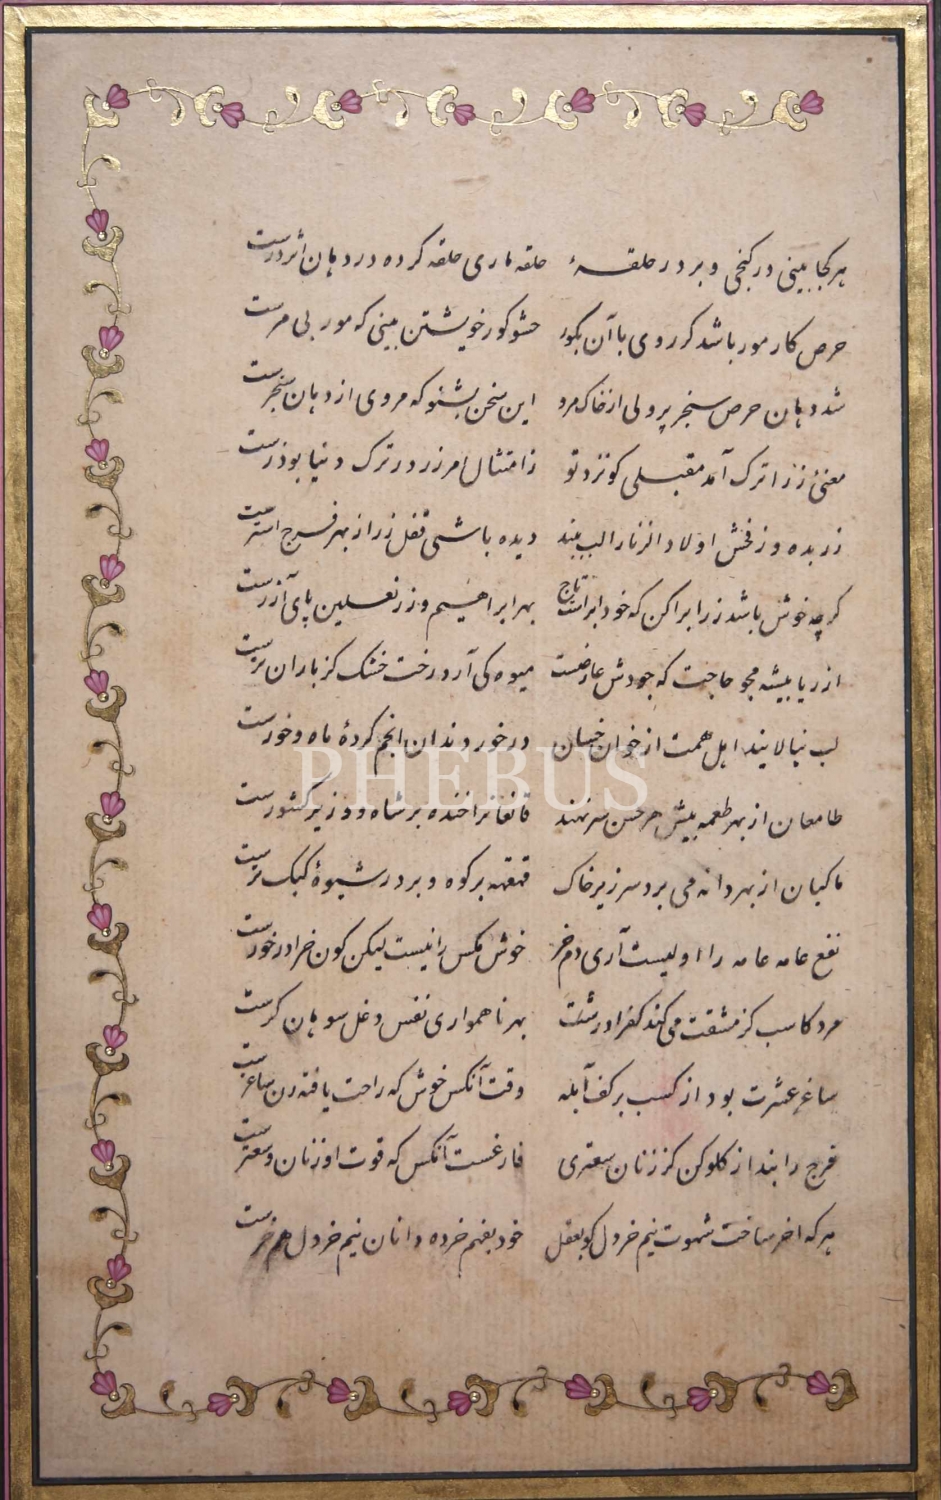 هر کجا بینی در گنجی و بر در حلقهٔ حلقه ماری حلقه کرده در دهان اژدرست
حرص کار مور باشد گر روی با آن بگور حشو گور خویشتن بینی که مور بی مرست
شد دهان حرص سنجر پر ولی از خاک مرو این سخن بشنو که مروی از دهان سنجرست
معنیٔ زر اترک آمد مقبلی کو نزد تو ز امتثال امر زر در ترک دنیا بوذرست
زر بده وز فحش اولاد الزنا را لب ببند دیده باشی قفل زر از بهر فرج استرست
گرچه خوش باشد زر ابرا کن که خود ابراست تاج بهر ابراهیم وزر نعلین پای آزرست
از ریا پیشه مجو حاجت که جودش عارضست میوه کی آرد درخت خشک کز باران ترست
لب نیالایند اهل همت از خوان خسان در خور دندان انجم گردهٔ ماه و خورست
طامعان از بهر طعمه پیش هر خس سر نهند قانعانرا خنده بر شاه و وزیر کشورست
ماکیان از بهر دانه می برد سر زیر خاک قهقهه بر کوه و بر در شیوهٔ کبک نرست
نفع عامه عامه را اولیست آری دم خر خوش مگس را نیست لیکن کون خر را در خورست
مرد کاسب کز مشقت می کند کف را درشت بهر ناهمواری نفس دغل سوهان گرست
ساغر عشرت بود از کسب بر کف آبله وقت آنکس خوش که راحت یافته زن ساغرست
فرج را بند از گلو کن کز زنان سعتری فارغست آنکس که قوت او ز نان و سعترست
هر که آخر ساخت شهوت نیم خردل کو بعقل خود بفهم خرده دانان نیم خردل هم خرست
PHEBUS